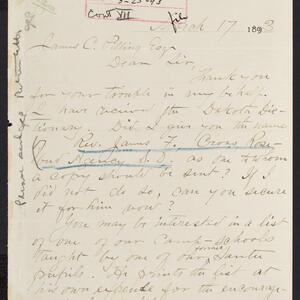 3-25-93
Cont VII
file
March 17 1893
James C. Pilling Esq.
Dear Sir,
Thank you
for your trouble in my behalf.
I have received the Dakota Dic-
tionary. Did I give you the name
Rev. James F. Cross Rose-
bud Agency S. D. as one to whom
a copy should be sent? If I
did not do so, can you secure
it for him now?
You may be interested in a list
of one of our Camp-Schools
taught by one of our former Santee
pupils. He prints the list at
his own expense for the encourage-
Please